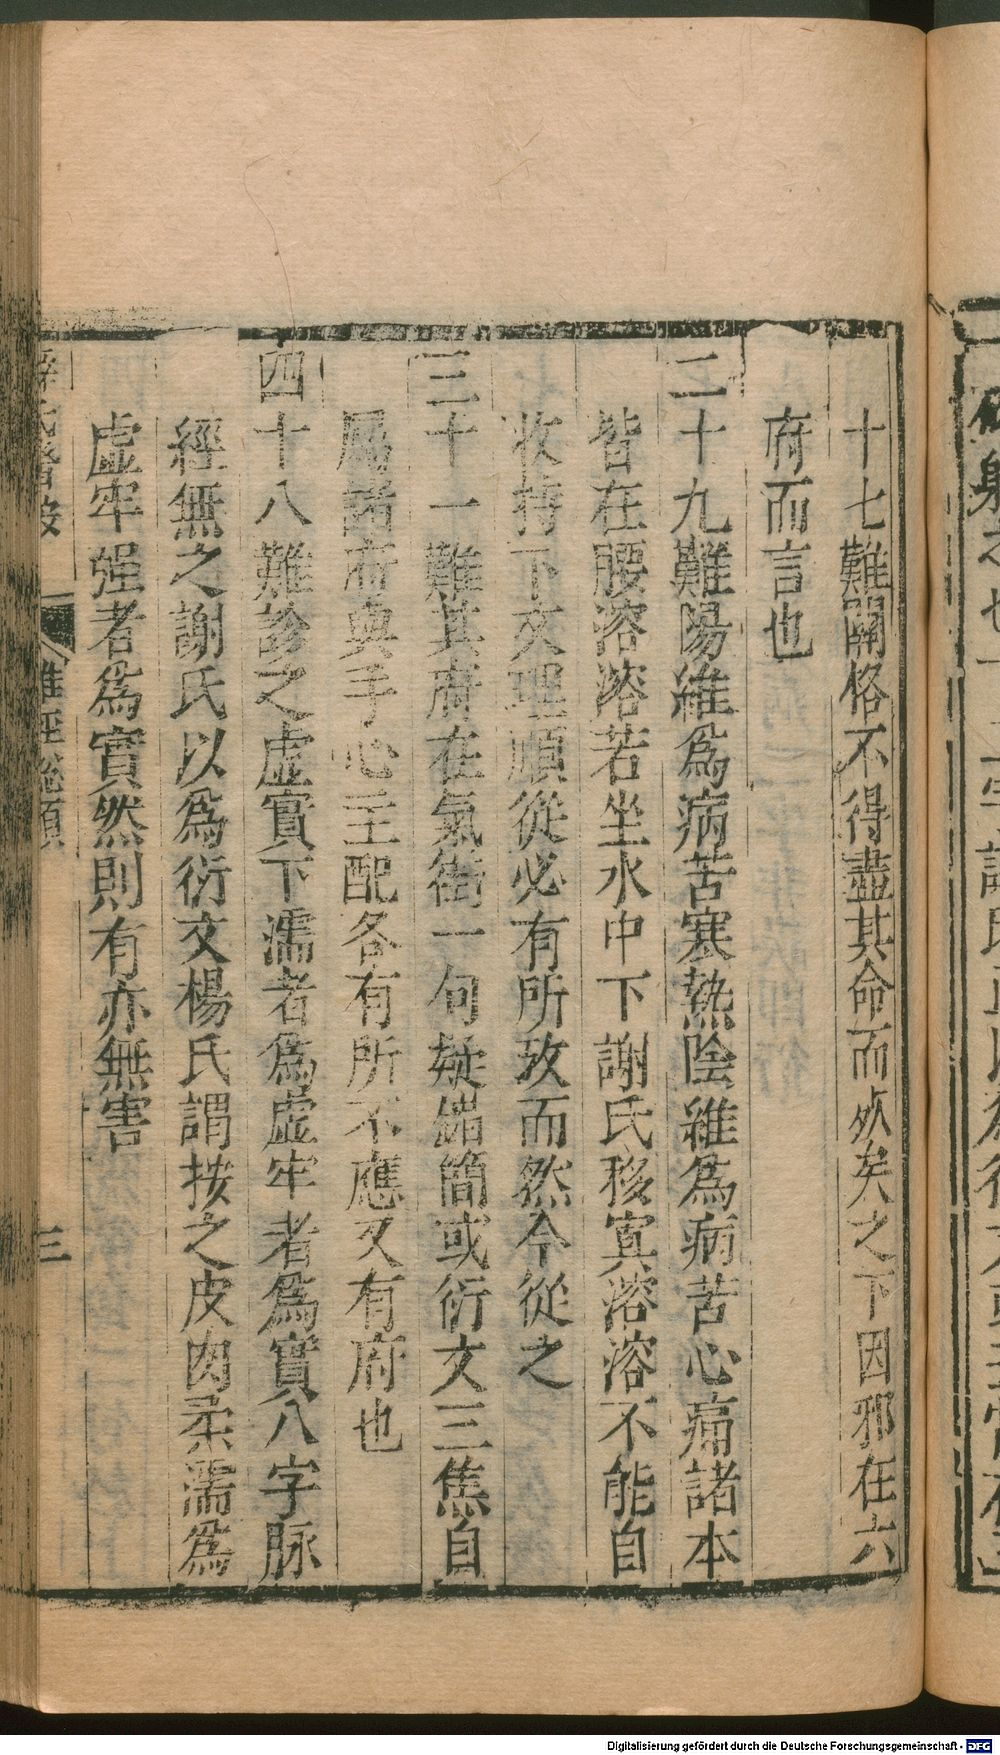 十七難關格不得盡其命而死矣之下因邪在六
府而言也
二十九難陽維爲病苦寒熱陰維爲病苦心痛諸本
皆在腰溶溶若坐水中下謝氏移寘溶溶不能自
收持下文理順從必有所攷而然今從之
三十一難其府在氣街一句疑錯簡或衍文三焦自
屬諸府與手心主配各有所不應又有府也
四十八難診之虛實下濡者爲虛牢者爲實八字脉
經無之謝氏以爲衍文楊氏謂按之皮肉柔濡爲
虛牢强者爲實然則有亦無害
三
Digitalisierung gefördert durch die Deutsche Forschungsgemeinschaft - DFG